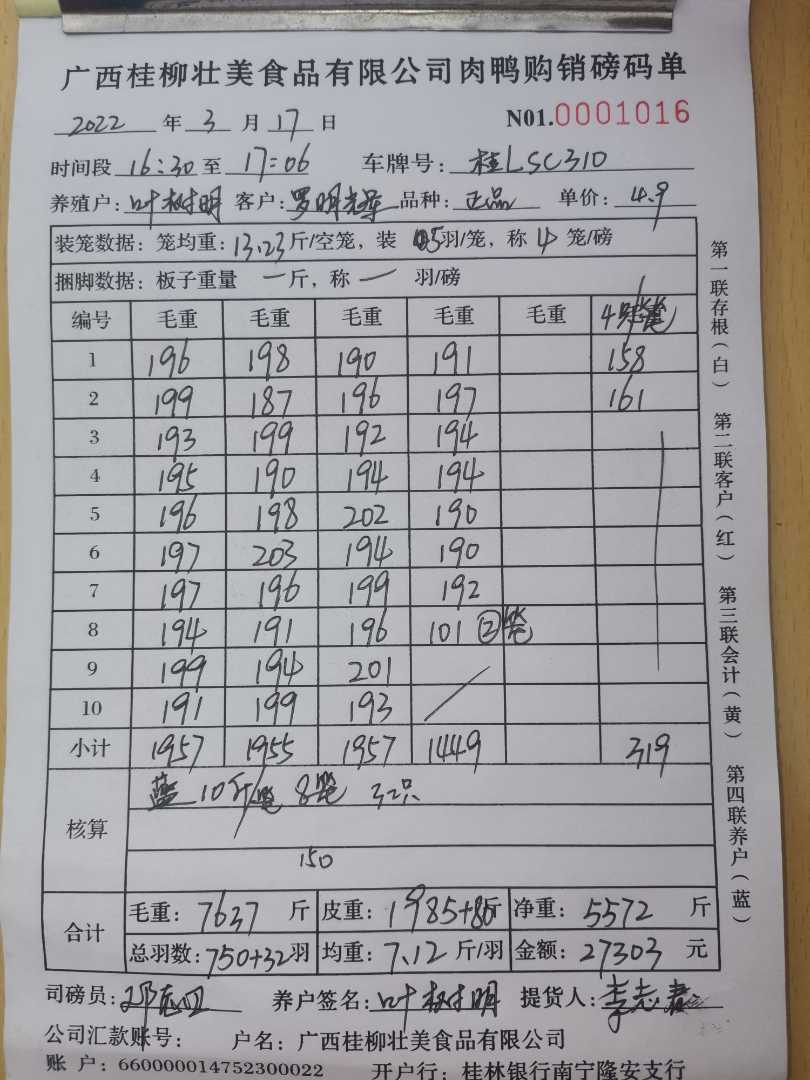 广西桂柳壮美食品有限公司肉鸭购销磅码单
2022 年 3 月 17 日 N01.0001016
时间段 16:30 至 17:06 车牌号: 桂LSC310
养殖户: 叶树明 客户: 罗明 品种: 正品 单价: 4.9
装笼数据: 笼均重: 13.23 斤/空笼, 装 5 羽/笼, 称 4 笼/磅
捆脚数据: 板子重量 一 斤, 称 一 羽/磅
编号 毛重 毛重 毛重 毛重 毛重 4
1 196 198 190 191 158
2 199 187 196 197 161
3 193 199 192 194
4 195 190 194 194
5 196 198 202 190
6 197 203 194 190
7 197 196 199 192
8 194 191 196 101 ②笼
9 199 194 201
10 191 199 193
小计 1957 1955 1957 1449 319
核算 蓝 10斤/笼 8笼 32只
150
合计 毛重: 7637 斤 皮重: 1985+80 斤 净重: 5572 斤
总羽数: 750+32 羽 均重: 7.12 斤/羽 金额: 27303 元
司磅员: 养户签名: 叶树明 提货人: 李志春
公司汇款账号: 户名: 广西桂柳壮美食品有限公司
账 户: 660000014752300022 开户行: 桂林银行南宁隆安支行
第一联存根(白) 第二联客户(红) 第三联会计(黄) 第四联养户(蓝)